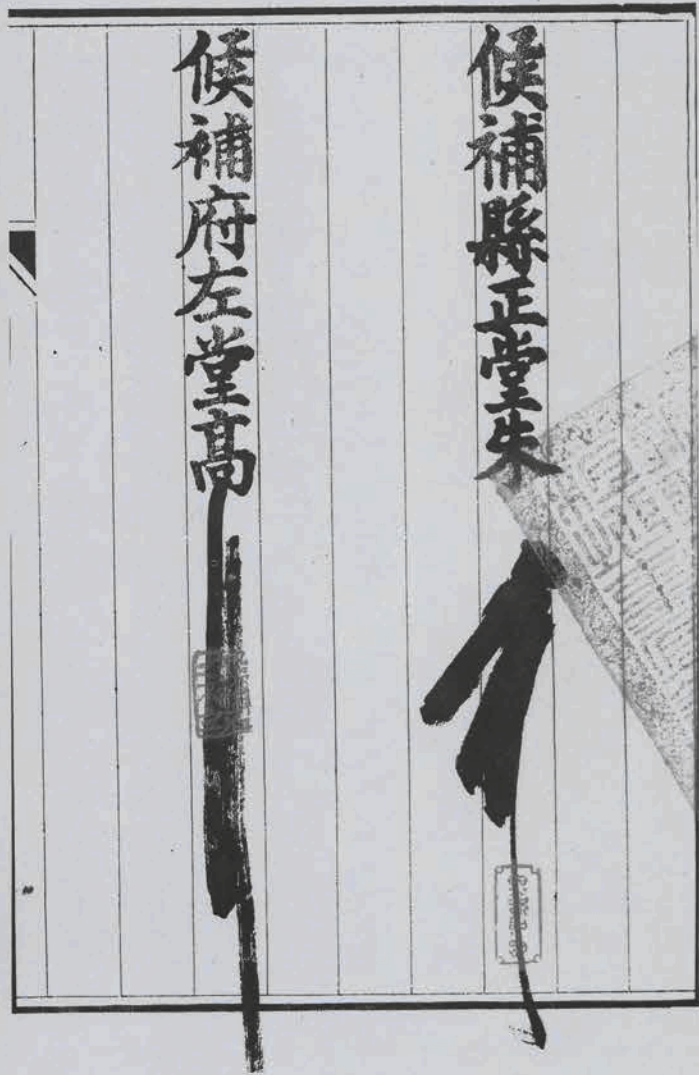 候補縣正堂朱
候補府左堂高